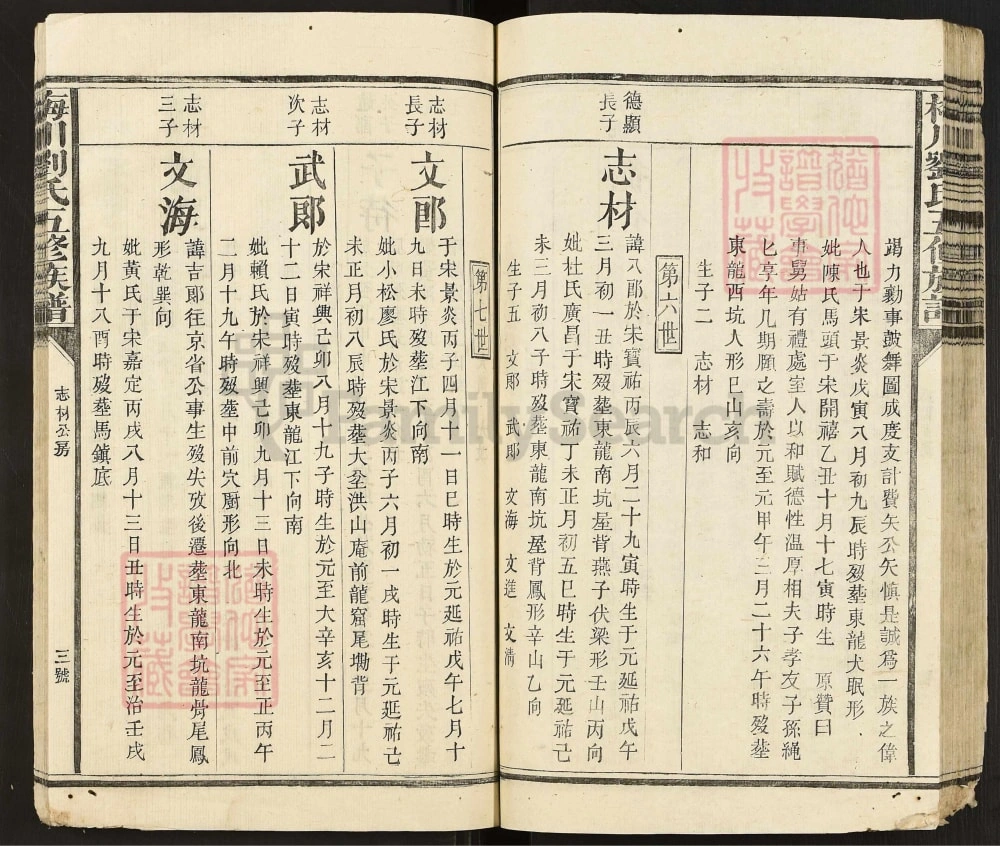 梅川劉氏五修族譜
竭力勷事鼓舞圖成度支計費矢公矢慎是誠為一族之偉
人也于宋景炎戊寅八月初九辰時歿塟東龍犬眠形
妣陳氏馬頭于宋開禧乙丑十月十七寅時生 原贊曰
事舅姑有禮處室人以和賦德性温厚相夫子孝友子孫繩
匕享年几期頤之壽於元至元甲午三月二十六午時歿塟
東龍西坑人形巳山亥向
生子二 志材 志和
第六世
德顯長子
志材
諱八郎於宋寶祐丙辰六月二十九寅時生于元延祐戊午
三月初一丑時歿塟東龍南坑屋背燕子伏梁形壬山丙向
妣杜氏廣昌于宋寶祐丁未正月初五巳時生于元延祐己
未三月初八子時歿塟東龍南坑屋背鳳形辛山乙向
生子五 文郎 武郎 文海 文進 文清
第七世
志材長子
文郎
于宋景炎丙子四月十一日巳時生於元延祐戊午七月十
九日未時歿塟江下向南
妣小松廖氏於宋景炎丙子六月初一戌時生于元延祐己
未正月初八辰時歿塟大坌洪山庵前龍窟尾塅背
志材次子
武郎
於宋祥興己卯八月十九子時生於元至大辛亥十二月二
十二日寅時歿塟東龍江下向南
妣賴氏於宋祥興己卯九月十三日未時生於元至正丙午
二月十九午時歿塟中前穴廚形向北
志材三子
文海
諱吉郎往京省公事生歿失攷後遷塟東龍南坑龍骨尾鳳
形乾巽向
妣黃氏于宋嘉定丙戌八月十三日丑時生於元至治壬戌
九月十八酉時歿塟馬鎮底
梅川劉氏五修族譜
志材公房
三號
FamilySearch